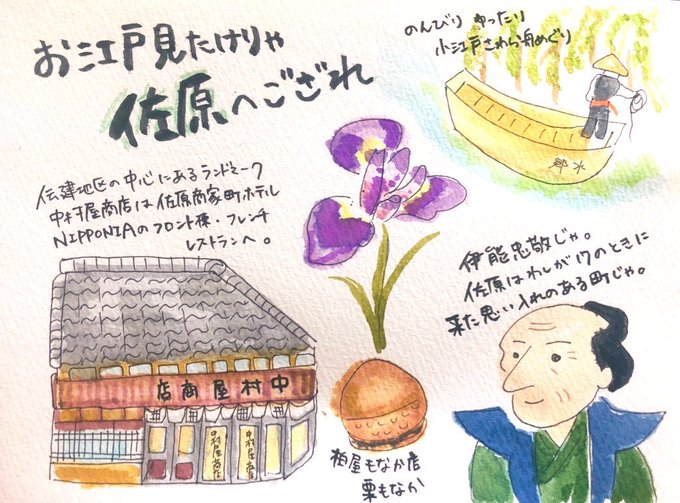 お江戸見たけりゃ
佐原へござれ
のんびり ゆったり
小江戸さわら舟めぐり
郷 水
伝建地区の中心にあるランドマーク
中村屋商店は佐原商家町ホテル
NIPPONIAのフロント棟・フレンチ
レストランへ。
伊能忠敬じゃ。
佐原はわしが17のときに
来た思い入れのある町じゃ。
店商屋村中
中村屋商店
中村屋商店
柏屋もなか店
栗もなか